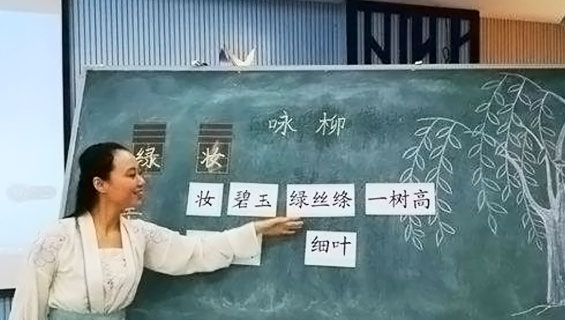 咏柳
绿 妆
妆 碧玉 绿丝绦 一树高
细叶